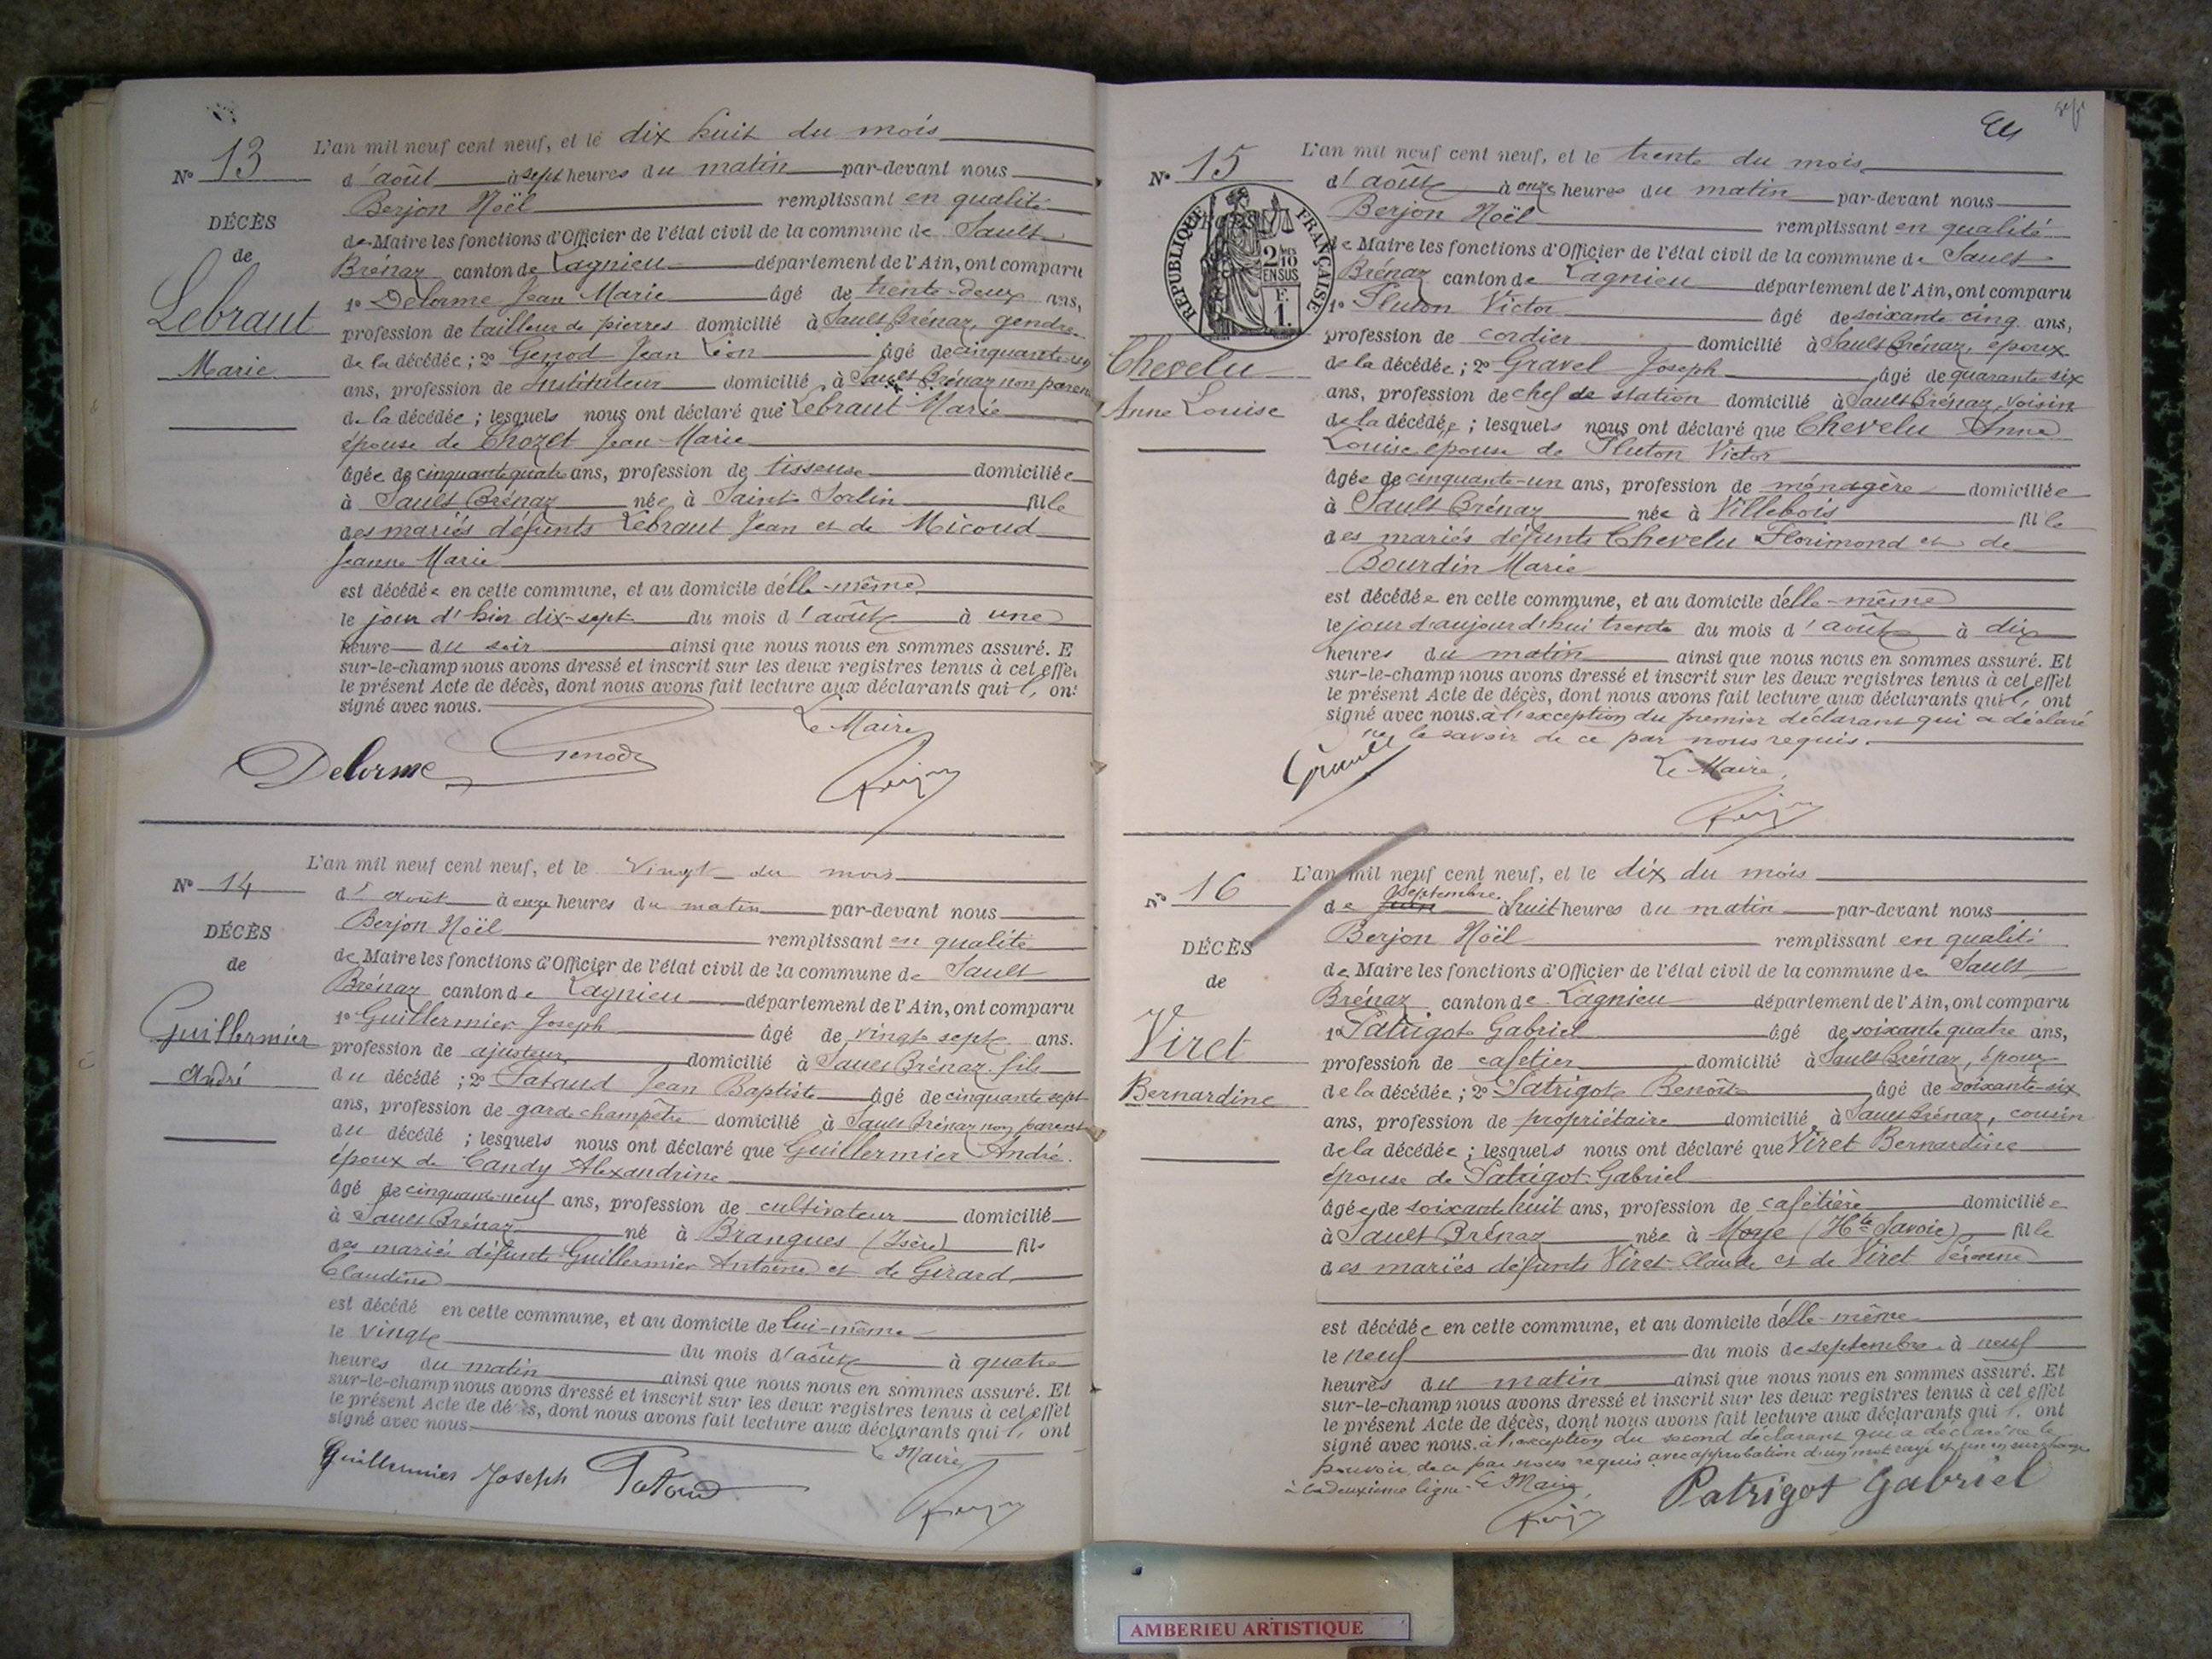 N° 13
DÉCÈS
de
Lebraut
Marie
L'an mil neuf cent neuf, et le dix huit du mois
d'août à sept heures du matin par-devant nous
Berjon Noël remplissant en qualité
de Maire les fonctions d'Officier de l'état civil de la commune de Sault
Brénaz canton de Lagnieu département de l'Ain, ont comparu
1° Delorme Jean Marie âgé de trente-deux ans,
profession de tailleur de pierres domicilié à Sault Brénaz, gendre
de la décédée ; 2° Genod Jean Léon âgé de cinquante-un
ans, profession de Instituteur domicilié à Sault Brénaz non parent
de la décédée ; lesquels nous ont déclaré que Lebraut Marie
épouse de Chozet Jean-Marie
âgée de cinquante quatre ans, profession de tisseuse domiciliée
à Sault Brénaz née à Saint Sorlin fille
des mariés défunts Lebraut Jean et de Micoud
Jeanne Marie
est décédée en cette commune, et au domicile d'elle-même
le jour d'hier dix-sept du mois d'août à une
heure du soir ainsi que nous nous en sommes assuré. E
sur-le-champ nous avons dressé et inscrit sur les deux registres tenus à cet effet
le présent Acte de décès, dont nous avons fait lecture aux déclarants qui l'ont
signé avec nous.
Le Maire
Delorme Genod
N° 14
DÉCÈS
de
Guillermier
André
L'an mil neuf cent neuf, et le Vingt du mois
d'août à onze heures du matin par-devant nous
Berjon Noël remplissant en qualité
de Maire les fonctions d'Officier de l'état civil de la commune de Sault
Brénaz canton de Lagnieu département de l'Ain, ont comparu
1° Guillermier Joseph âgé de vingt sept ans.
profession de ajusteur domicilié à Sault Brénaz fils
du décédé ; 2° Pataud Jean Baptiste âgé de cinquante sept
ans, profession de garde champêtre domicilié à Sault Brénaz non parent
du décédé ; lesquels nous ont déclaré que Guillermier André
époux de Candy Alexandrine
âgé de cinquante-neuf ans, profession de cultivateur domicilié
à Sault Brénaz né à Brangues (Isère) fils
des mariés défunts Guillermier Antoine et de Girard
Claudine
est décédé en cette commune, et au domicile de lui-même
le vingt du mois d'août à quatre
heures du matin ainsi que nous nous en sommes assuré. Et
sur-le-champ nous avons dressé et inscrit sur les deux registres tenus à cet effet
le présent Acte de décès, dont nous avons fait lecture aux déclarants qui l'ont
signé avec nous
Le Maire
Guillermier Joseph Pataud
N° 15
RÉPUBLIQUE FRANÇAISE
2/10 EN SUS
F. 1.
Chevelu
Anne Louise
L'an mil neuf cent neuf, et le trente du mois
d'août à onze heures du matin par-devant nous
Berjon Noël remplissant en qualité
de Maire les fonctions d'Officier de l'état civil de la commune de Sault
Brénaz canton de Lagnieu département de l'Ain, ont comparu
1° Pluton Victor âgé de soixante cinq ans,
profession de cordier domicilié à Sault Brénaz, époux
de la décédée ; 2° Gravel Joseph âgé de quarante six
ans, profession de chef de station domicilié à Sault Brénaz, voisin
de la décédée ; lesquels nous ont déclaré que Chevelu Anne
Louise épouse de Pluton Victor
âgée de cinquante-un ans, profession de ménagère domiciliée
à Sault Brénaz née à Villebois fille
des mariés défunts Chevelu Florimond et de
Bourdin Marie
est décédée en cette commune, et au domicile d'elle-même
le jour d'aujourd'hui trente du mois d'août à dix
heures du matin ainsi que nous nous en sommes assuré. Et
sur-le-champ nous avons dressé et inscrit sur les deux registres tenus à cet effet
le présent Acte de décès, dont nous avons fait lecture aux déclarants qui l'ont
signé avec nous. à l'exception du premier déclarant qui a déclaré
ne le savoir de ce par nous requis.
Le Maire,
Gravel
N° 16
DÉCÈS
de
Viret
Bernardine
L'an mil neuf cent neuf, et le dix du mois
de juin septembre à huit heures du matin par-devant nous
Berjon Noël remplissant en qualité
de Maire les fonctions d'Officier de l'état civil de la commune de Sault
Brénaz canton de Lagnieu département de l'Ain, ont comparu
1° Patrigot Gabriel âgé de soixante quatre ans,
profession de cafetier domicilié à Sault Brénaz, époux
de la décédée ; 2° Patrigot Benoît âgé de soixante-six
ans, profession de propriétaire domicilié à Sault Brénaz, cousin
de la décédée ; lesquels nous ont déclaré que Viret Bernardine
épouse de Patrigot Gabriel
âgée de soixante huit ans, profession de cafetière domiciliée
à Sault Brénaz née à Moye (Hte Savoie) fille
des mariés défunts Viret Claude et de Viret
est décédée en cette commune, et au domicile d'elle-même
le neuf du mois de septembre à neuf
heures du matin ainsi que nous nous en sommes assuré. Et
sur-le-champ nous avons dressé et inscrit sur les deux registres tenus à cet effet
le présent Acte de décès, dont nous avons fait lecture aux déclarants qui l'ont
signé avec nous. à l'exception du second déclarant qui a déclaré ne le
pouvoir de ce par nous requis avec approbation d'un mot rayé et un en surcharge
à la deuxième ligne. Le Maire,
Patrigot Gabriel
AMBERIEU ARTISTIQUE